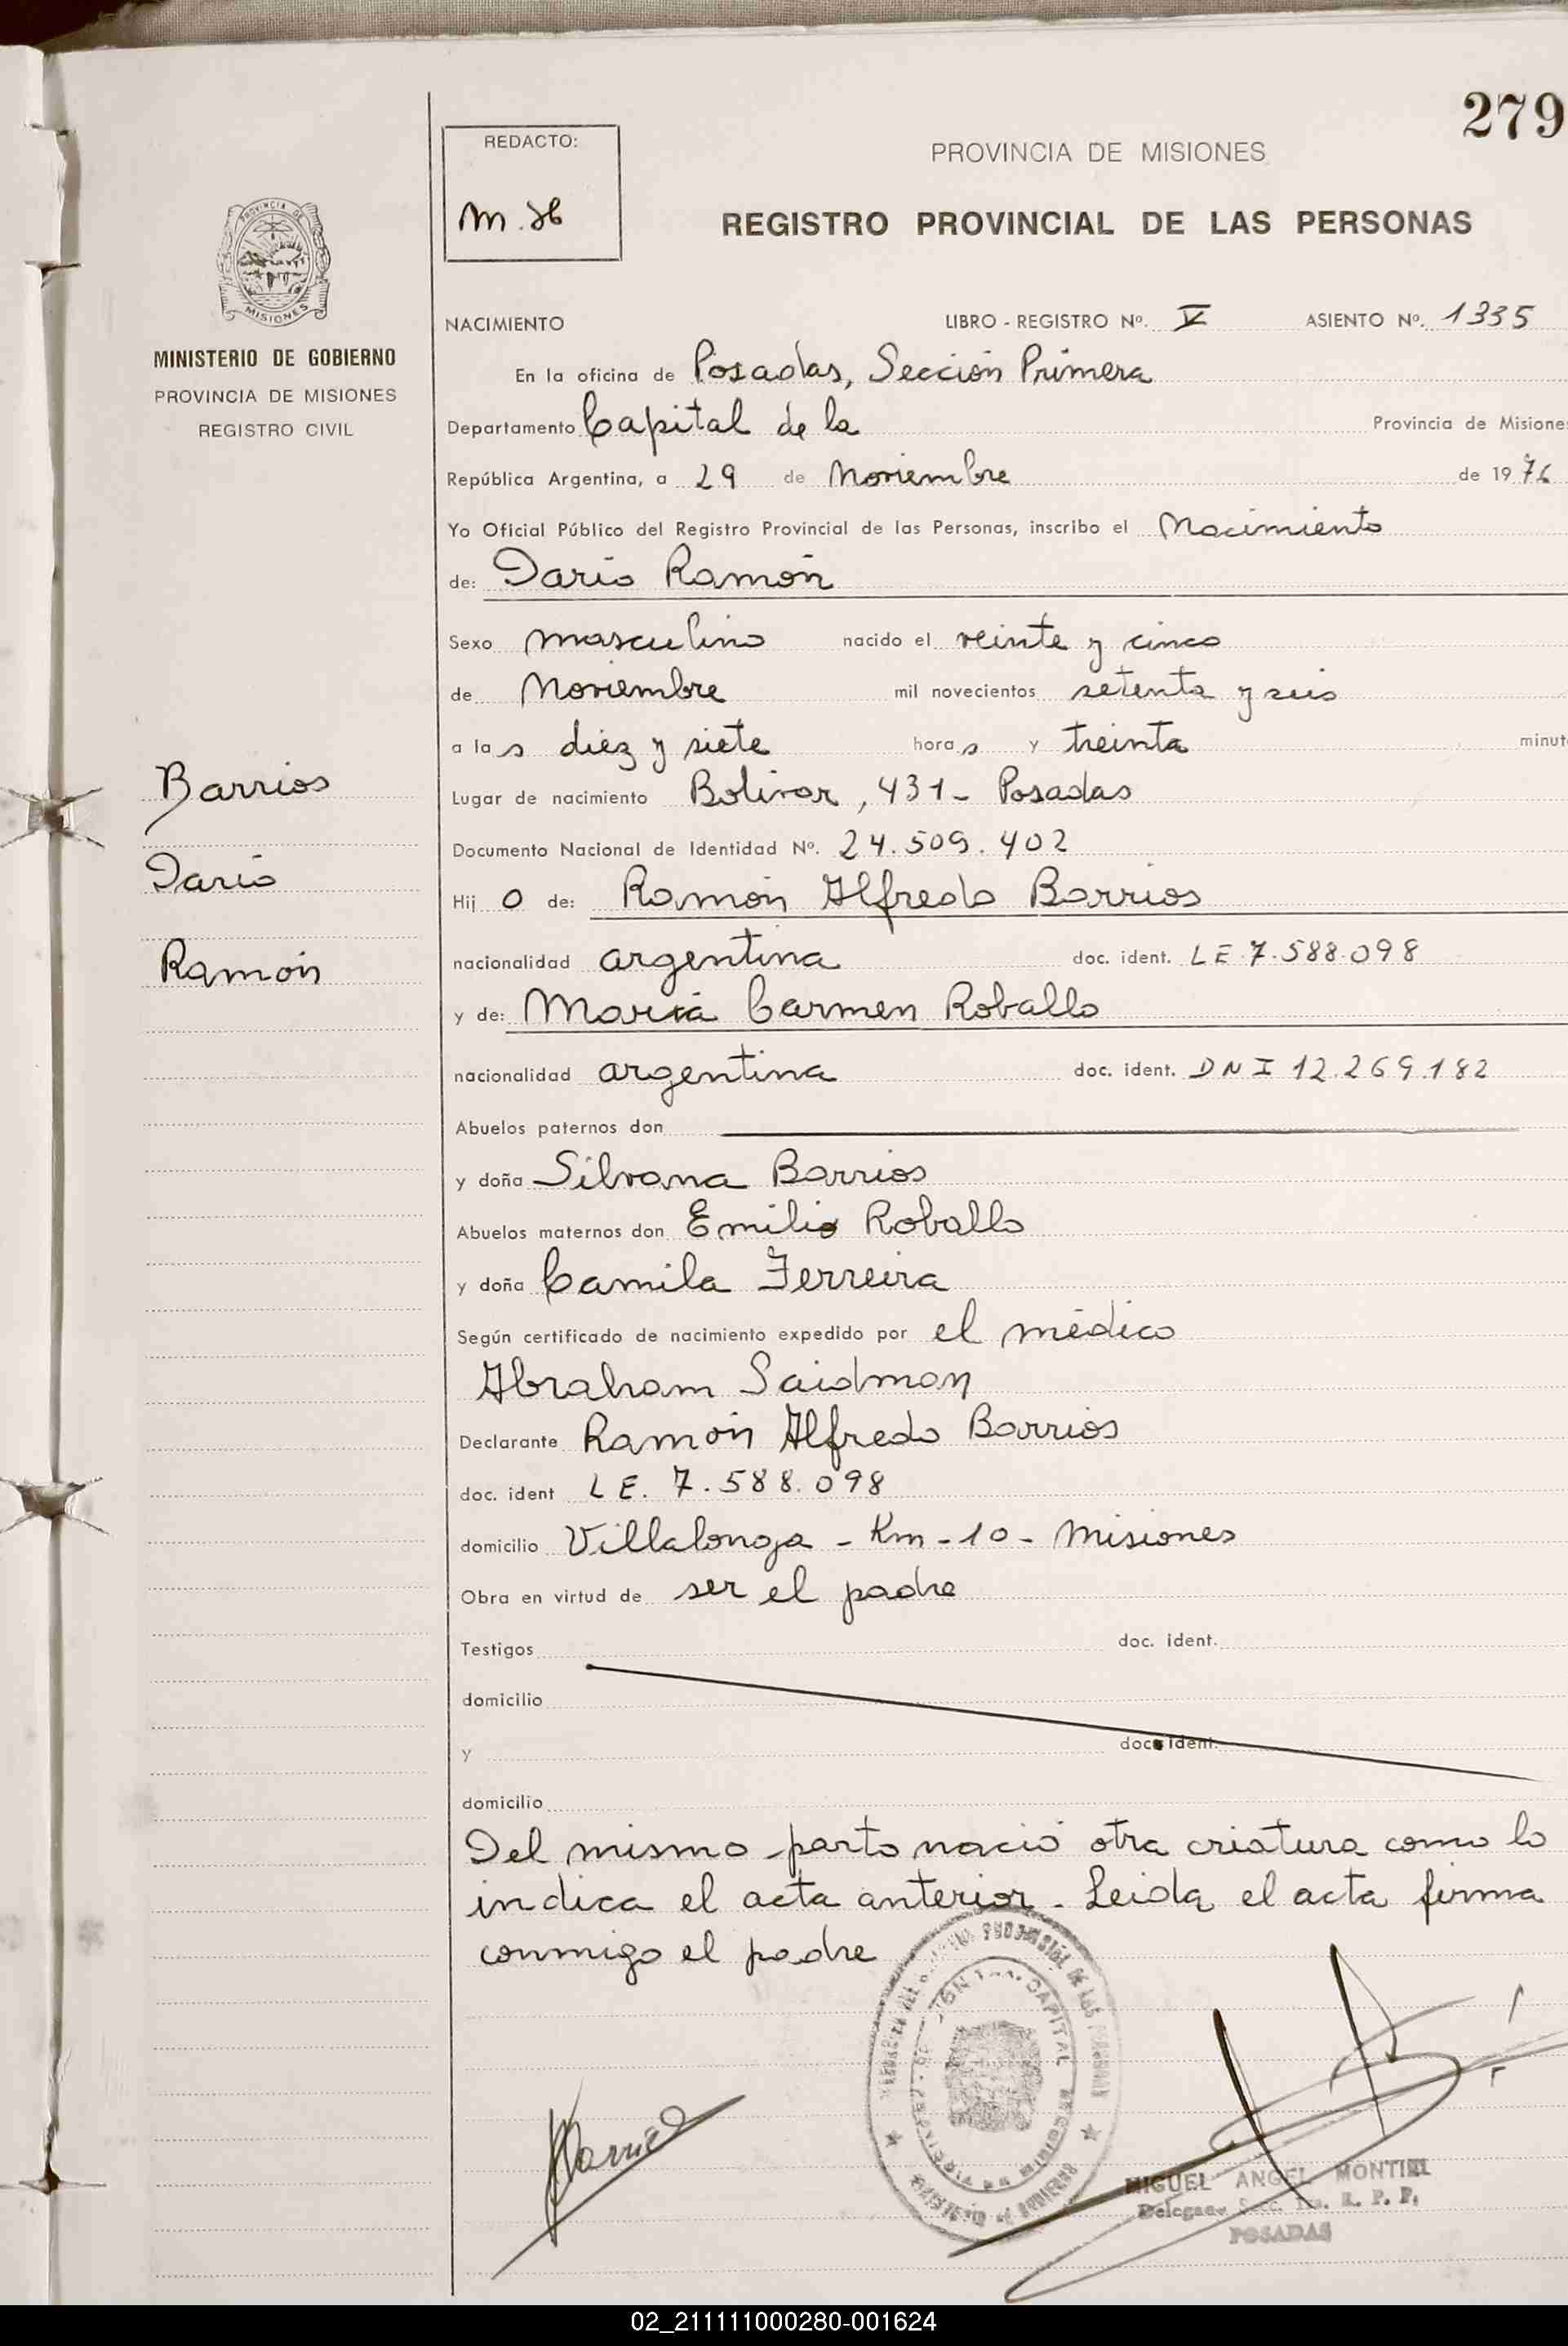 279
REDACTO:
PROVINCIA DE MISIONES
REGISTRO PROVINCIAL DE LAS PERSONAS
PROVINCIA DE
MISIONES
MINISTERIO DE GOBIERNO
PROVINCIA DE MISIONES
REGISTRO CIVIL
NACIMIENTO LIBRO - REGISTRO Nº. V ASIENTO Nº. 1335
En la oficina de Posadas, Sección Primera
Departamento Capital de la Provincia de Misione
República Argentina, a 29 de Noviembre de 1976
Yo Oficial Público del Registro Provincial de las Personas, inscribo el Nacimiento
de: Darío Ramón
Sexo masculino nacido el veinte y cinco
de Noviembre mil novecientos setenta y seis
a las diez y siete horas y treinta minut
Barrios
Darío
Ramón
Lugar de nacimiento Bolivar, 431- Posadas
Documento Nacional de Identidad Nº. 24.509.402
Hijo de: Ramón Alfredo Barrios
nacionalidad argentina doc. ident. LE 7.588.098
y de: María Carmen Roballo
nacionalidad argentina doc. ident. DNI 12.269.182
Abuelos paternos don
y doña Silvana Barrios
Abuelos maternos don Emilio Roballo
y doña Camila Ferreira
Según certificado de nacimiento expedido por el médico
Abraham Saidman
Declarante Ramón Alfredo Barrios
doc. ident LE. 7.588.098
domicilio Villalonga - Km - 10 - Misiones
Obra en virtud de ser el padre
Testigos doc. ident.
domicilio
y doc. ident.
domicilio
Del mismo parto nació otra criatura como lo
indica el acta anterior. Leida el acta firma
conmigo el padre
CAPITAL
MIGUEL ANGEL
R. P. P.
POSADAS
02_211111000280-001624